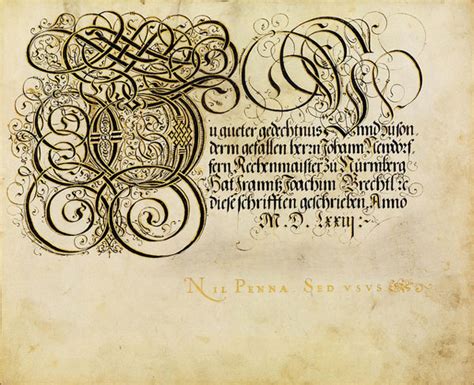 Zu gueter gedechtnus Vnnd zu son
derm gefallen herrn Johann Neudorf-
fern Rechenmaister zu Nürmberg
Hat Frantz Joachim Brechtl
diese schrifften geschrieben Anno
M. D. LXXIII :
NIL PENNA SED VSVS